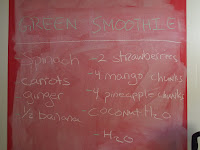 GREEN SMOOTHIE!
Spinach - 2 strawberries
carrots - 4 mango chunks
Ginger - 4 pineapple chunks
1/2 banana - Coconut H2O
- H2O